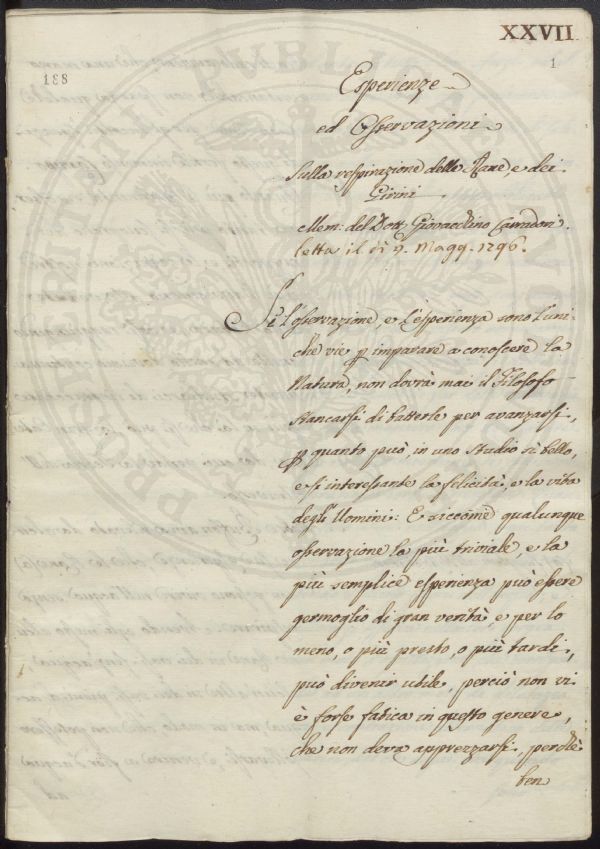 XXVII
1
188
Esperienze
ed Osservazioni
Sulla respirazione delle Rane, e dei
Girini
Mem: del Dott. Giovacchino
letta il dì 9. Magg. 1796.
Se l'osservazione, e l'esperienza sono l'uni-
che vie p imparare a conoscere la
Natura, non dovrà mai il Filosofo
stancarsi di batterle per avanzarsi,
p quanto può, in uno studio sì bello,
e sì interessante la felicità, e la vita
degli Uomini: E siccome qualunque
osservazione la più triviale, e la
più semplice esperienza può essere
germoglio di gran verità, e per lo
meno, o più presto, o più tardi,
può divenir utile, perciò non vi
è forse fatica in questo genere,
che non deva apprezzarsi, perchè
ben
PUBLICAE
PROSPERITATI